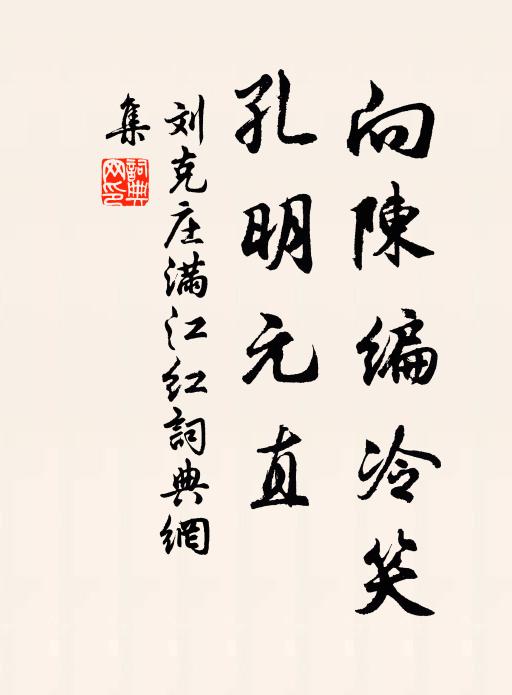 向陳編冷笑
孔明元直
刘克庄满江红詞典網
集
詞典网印